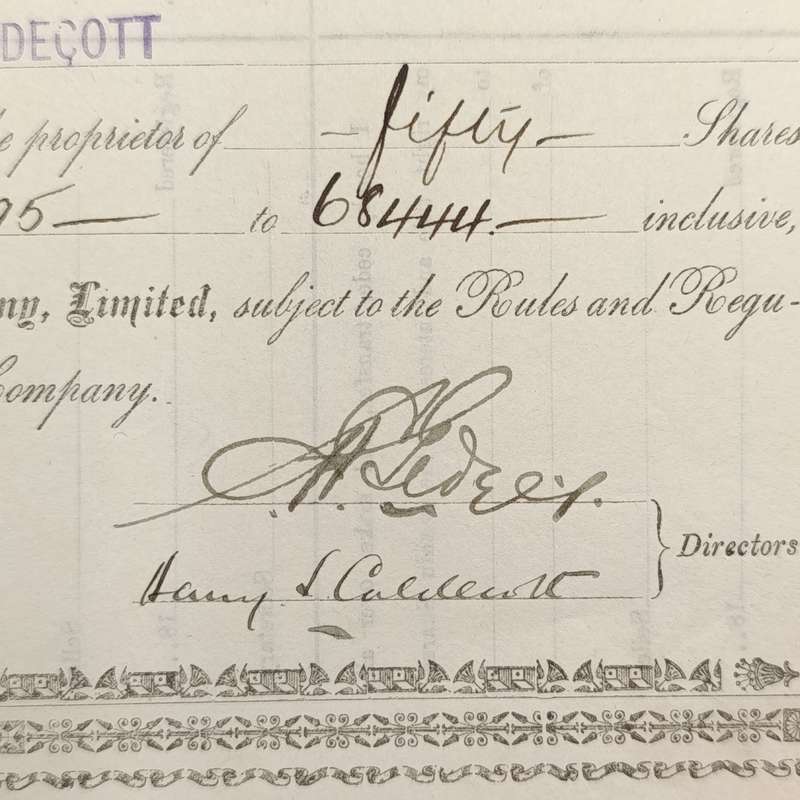 DECOTT
e proprietor of — fifty — Shares
95 — to 68444. — inclusive,
ny, Limited, subject to the Rules and Regu-
Company.
Directors
Harry S Caldecott